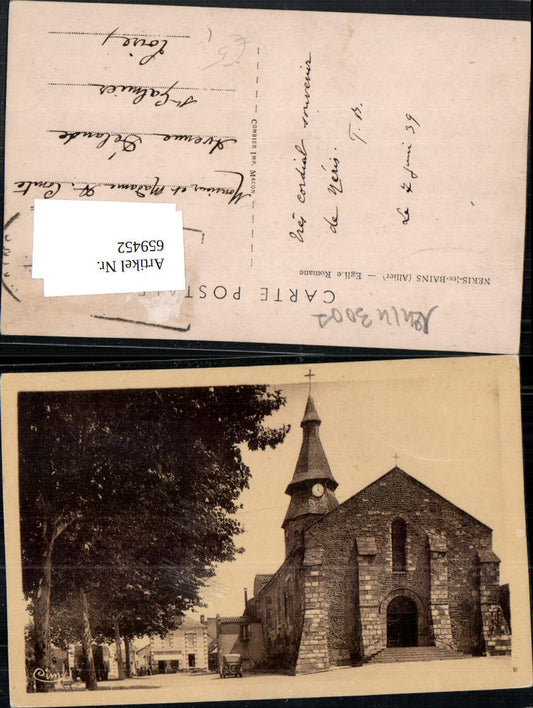 CARTE POSTALE
NERIS-les-BAINS (Allier) — Eglise Romane
Très cordial souvenir
de Néris.
T. B.
Le 7 juin 39
COMBIER IMP. MACON
Monsieur et Madame F. Conte
Avenue Delande
St Galmier
Loire
Artikel Nr.
659452